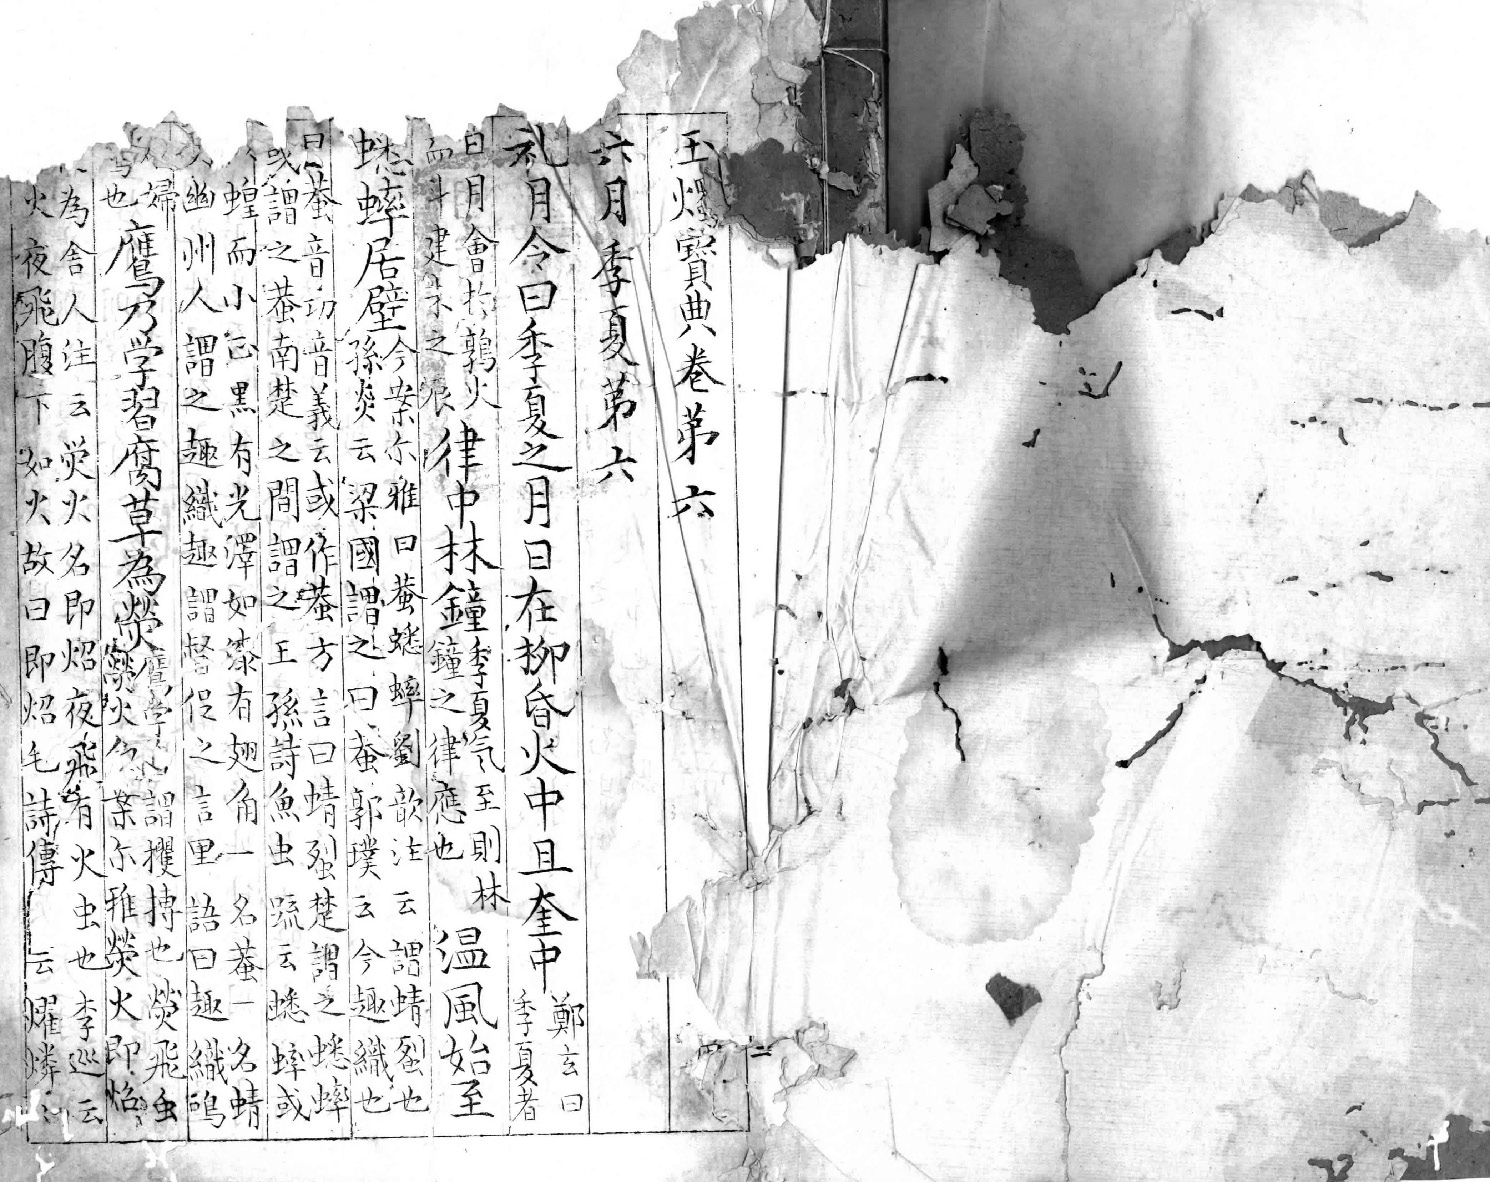 玉燭寶典卷第六
六月季夏第六
礼月令曰季夏之月日在柳昏火中旦奎中鄭玄曰季夏者
日月會於鶉火而斗建未之辰律中林鐘季夏氣至則林鐘之律應也温風始至
蟋蟀居壁今案尔雅曰蛬蟋蟀劉歆注云謂蜻蛚也孫炎云梁國謂之曰蛬郭璞云今趣織也
蛬音功音義云或作蛬方言曰蜻蛚楚謂之蟋蟀或謂之蛬南楚之間謂之王孫詩魚虫䟽云蟋蟀或
蝗而小正黒有光澤如漆有翅角一名蛬一名蜻幽州人謂之趣織趣謂督促之言里語曰趣織鳴
婦也鷹乃学習腐草為熒鷹学習謂攫搏也熒飛虫熒火今案尔雅熒火即炤
為舎人注云熒火名即炤夜飛有火虫也李巡云火夜飛腹下如火故曰即炤毛詩傳云燿燐